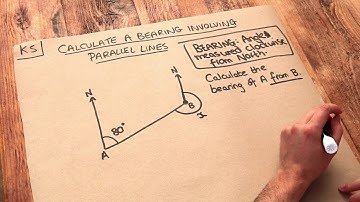 K5
CALCULATE A BEARING INVOLVING
PARALLEL LINES
BEARING: Angle
measured clockwise
from North.
Calculate the
bearing of A from B.
N
N
80°
B
A